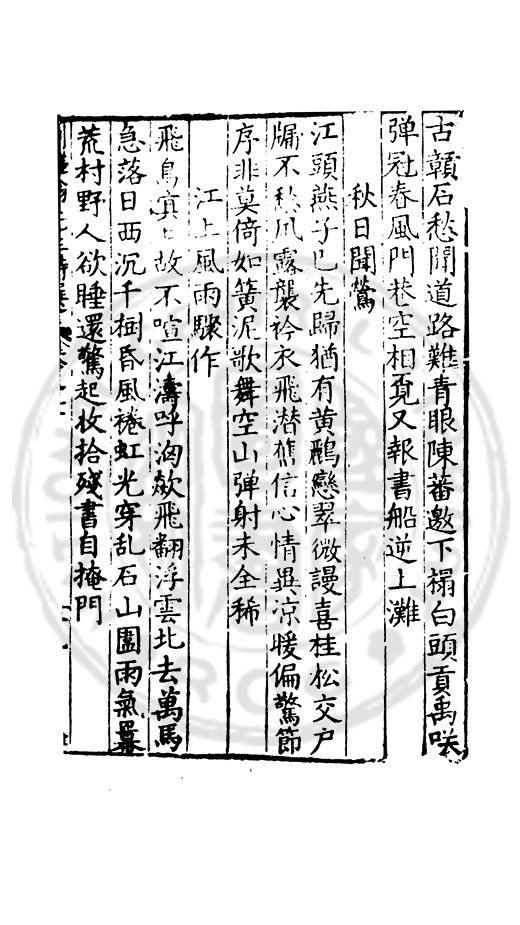 古贛石愁聞道路難青眼陳蕃邀下榻白頭貢禹咲
弹冠春風門巷空相覔又報書船逆上灘
秋日聞鶯
江頭燕子已先歸猶有黄鸝戀翠微謾喜桂松交户
牖不愁風露襲衿衣飛潜舊信心情異凉暖偏驚節
序非莫倚如簧泥歌舞空山弹射未全稀
江上風雨驟作
飛鳥 故不喧江濤呼洶歘飛翻浮雲北去萬馬
急落日西沉千樹昏風捲虹光穿乱石山圍雨氣暴
荒村野人欲睡還驚起收拾殘書自掩門